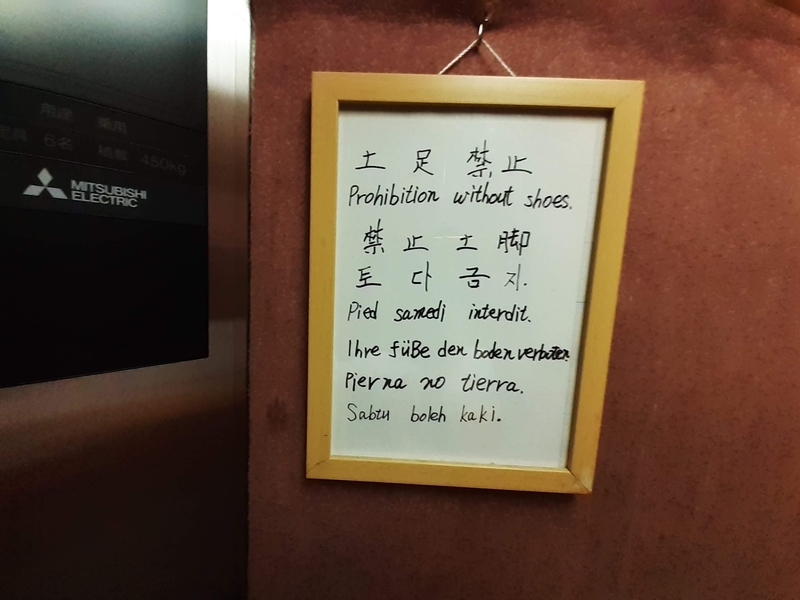 用途 乗用
定員 6名 積載 450kg
MITSUBISHI
ELECTRIC
土 足 禁 止
Prohibition without shoes.
禁 止 土 脚
토 다 금 지.
Pied samedi interdit.
Ihre füße den boden verboten.
Pierna no tierra.
Sabtu boleh kaki.